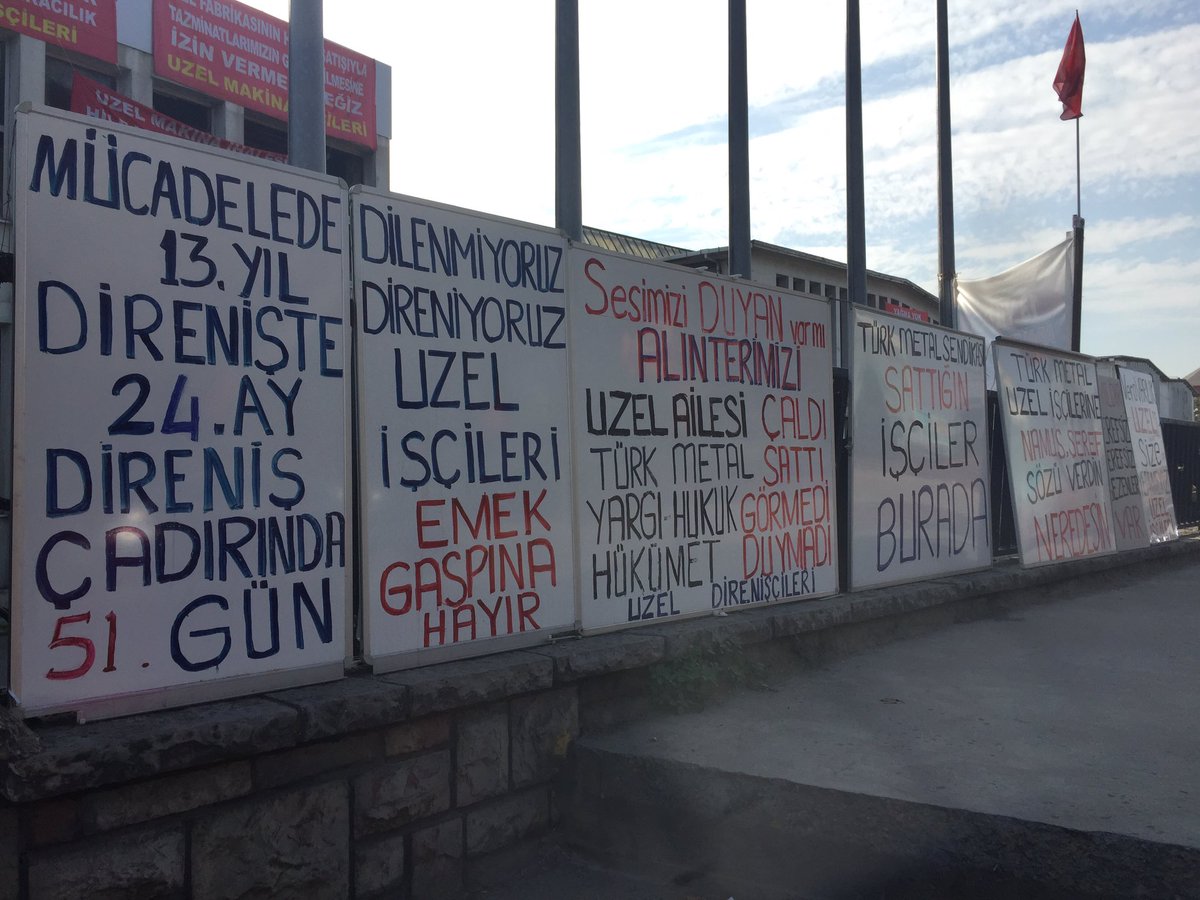 ARACILIK
İŞÇİLERİ
İZİN VERME
UZEL MAKİNA
İLERİ
UZEL MAKİNA İHALESİ
MÜCADELEDE
13. YIL
DİRENİŞTE
24. AY
DİRENİŞ
ÇADIRINDA
51. GÜN
DİLENMİYORUZ
DİRENİYORUZ
UZEL
İŞÇİLERİ
EMEK
GASPINA
HAYIR
Sesimizi DUYAN var mı
ALINTERİMİZİ
UZEL AİLESİ ÇALDI
TÜRK METAL SATTI
YARGI-HUKUK GÖRMEDİ
HÜKÜMET DUYMADI
UZEL DİRENİŞÇİLERİ
TÜRK METAL SENDİKASI
SATTIĞIN
İŞÇİLER
BURADA
YAĞMA YOK
TÜRK METAL
UZEL İŞÇİLERİNE
NAMUS, ŞEREF
SÖZÜ VERDİN
NEREDESİN
EZENLER
VAR
UZEL
Size